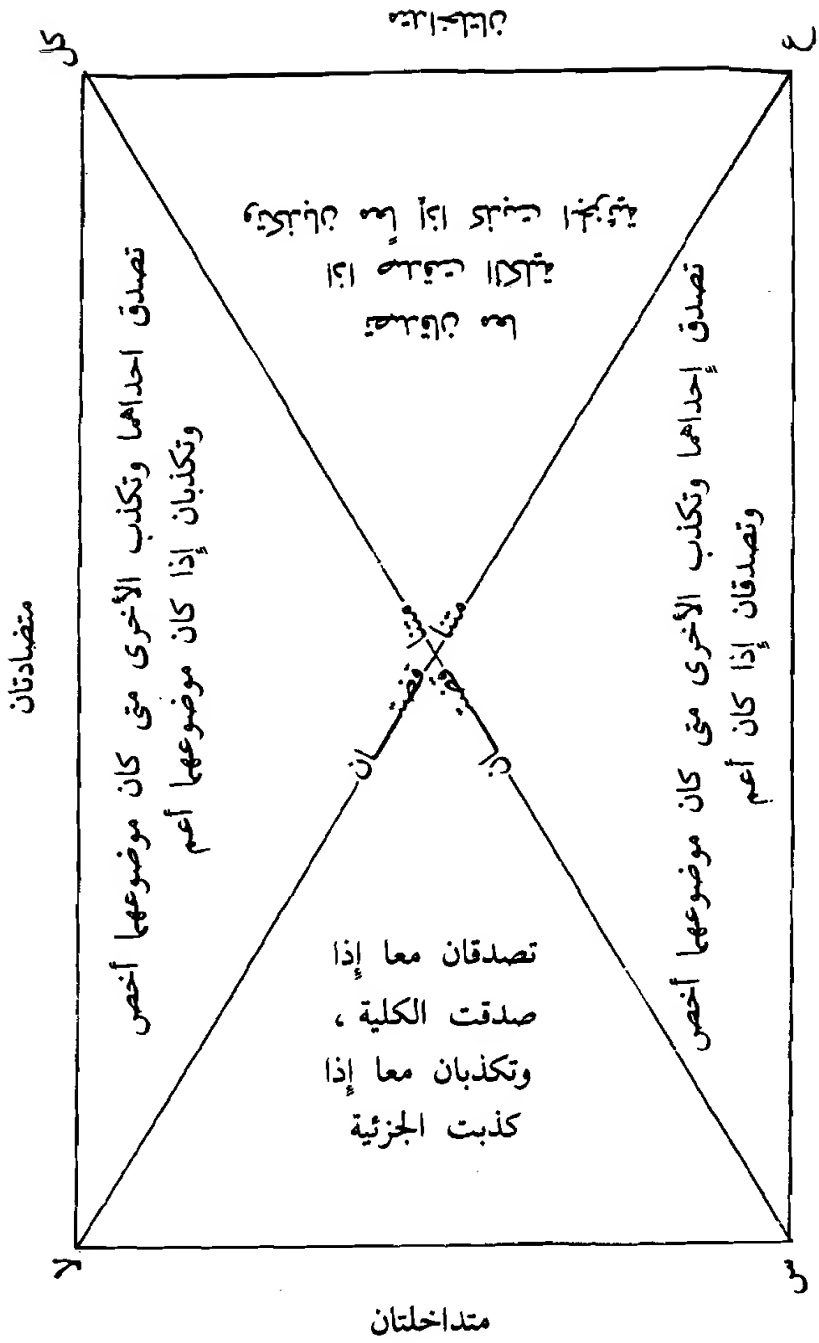 متداخلتان
كل
ع
تصدقان معا
اذا صدقت الكلية
وتكذبان معاً إذا كذبت الجزئية
متضادتان
تصدق احداهما وتكذب الأخرى متى كان موضوعهما أخص
وتكذبان إذا كان موضوعهما أعم
متنا قضتـ ـان
متنا قضتـ ـان
تصدق إحداهما وتكذب الأخرى متى كان موضوعهما أخص
وتصدقان إذا كان أعم
تصدقان معا إذا
صدقت الكلية ،
وتكذبان معا إذا
كذبت الجزئية
لا
س
متداخلتان